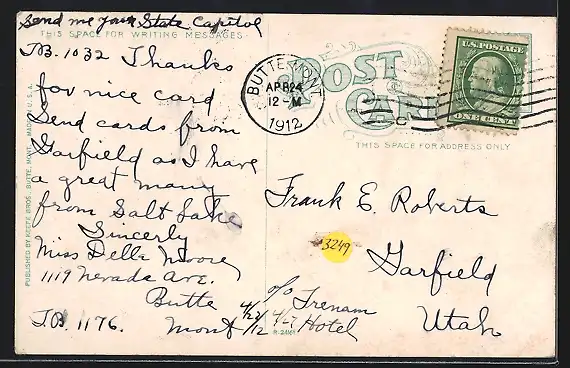 Send me your State Capitol
THIS SPACE FOR WRITING MESSAGES
J.B. 1032 Thanks
for nice card
Send cards from
Garfield as I have
a great many
from Salt Lake
Sincerly
Miss Della Moore
1119 Nevada Ave.
Butte
Mont
4/23/12
J.B. 1176.
PUBLISHED BY KEEFE BROS., BUTTE, MONT. MADE IN U.S.A.
POST CARD
BUTTE, MONT.
APR 24
12-M
1912
U.S. POSTAGE
ONE CENT
THIS SPACE FOR ADDRESS ONLY
Frank E. Roberts
3249
Garfield
c/o Trenam
Hotel
Utah
4/27